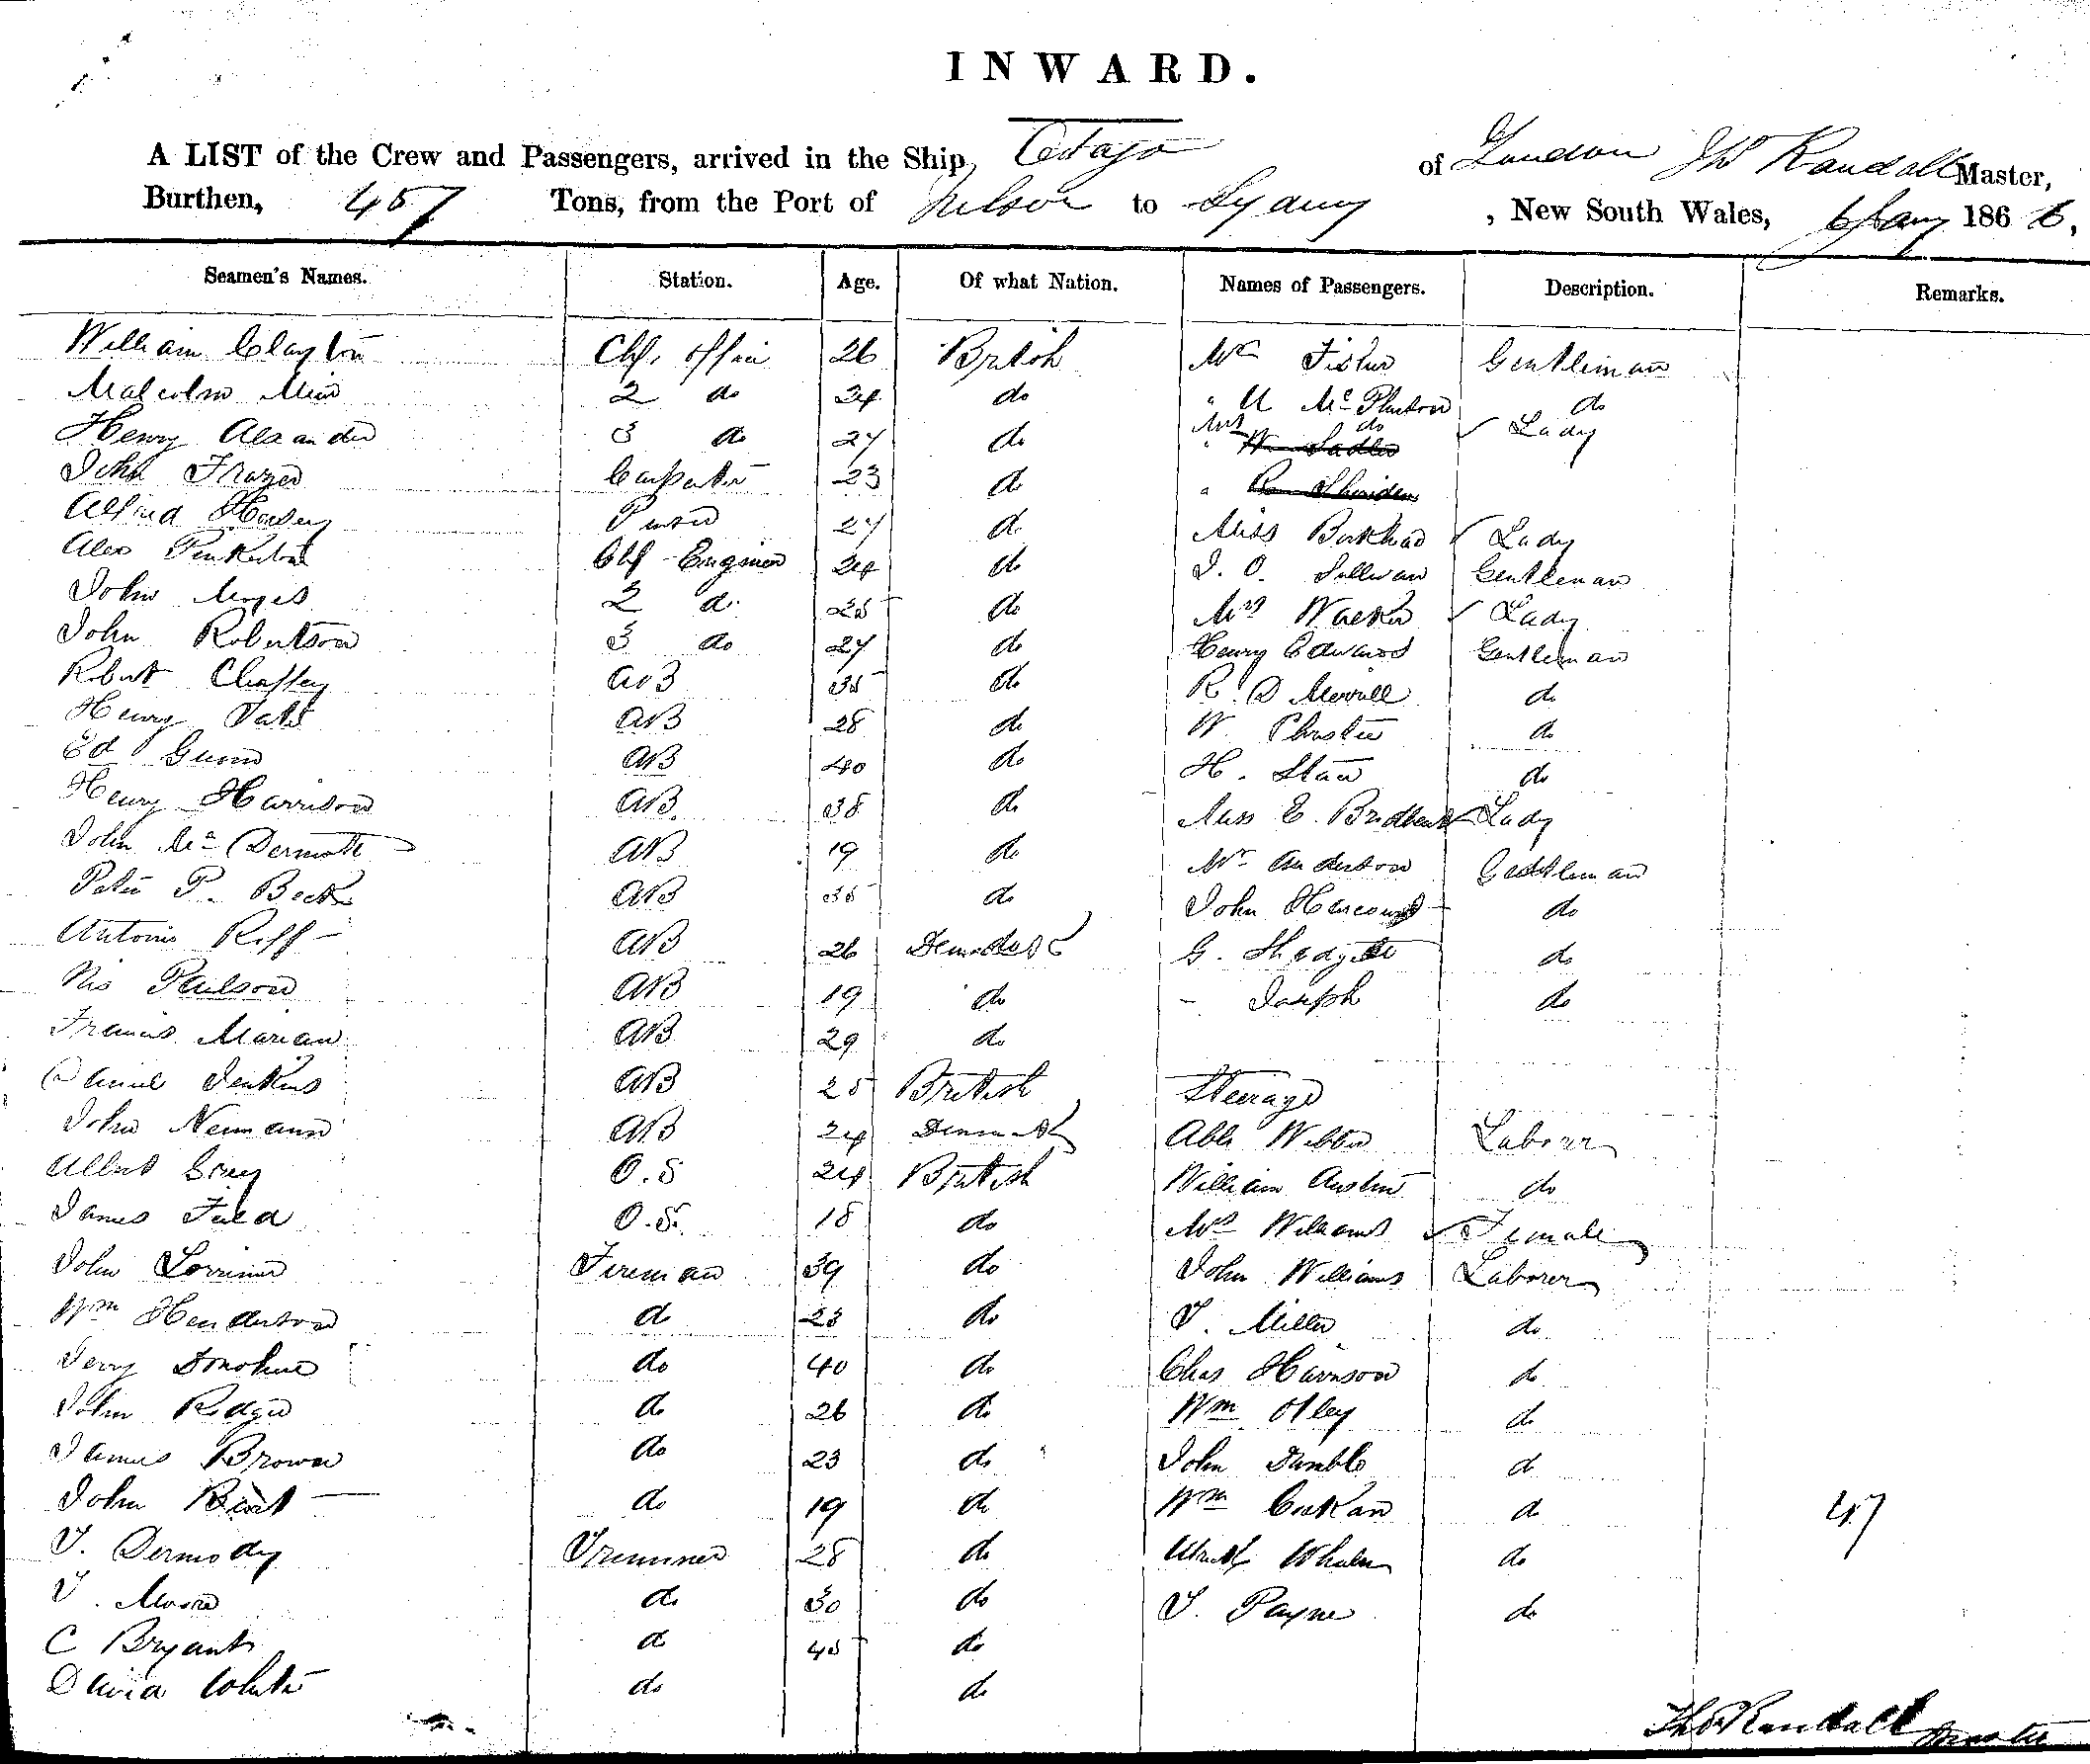 INWARD.
A LIST of the Crew and Passengers, arrived in the Ship Otago of London Thos Randall Master,
Burthen, 457 Tons, from the Port of Nelson to Sydney, New South Wales, 6 Jany 1866,
Seamen's Names. Station. Age. Of what Nation. Names of Passengers. Description. Remarks.
William Clayton Chf. Officer 26 British Mr Fisher Gentleman
Malcolm 2 do 24 do " Mc Pherson do
Mrs do Lady
Henry Alexander 3 do 27 do " W Sadler
John Frazer Carpenter 23 do " R Sheridan
Alfred Purser 27 do Miss Lady
Alex Pinkerton Chf Engineer 24 do J. O. Sullivan Gentleman
John 2 do 25 do Mrs Walker Lady
John Robertson 3 do 27 do Henry Edwards Gentleman
Robert Chaffey AB 35 do R. D Merrill do
Henry Tate AB 28 do W. Christie do
Ed Gunn AB 40 do H. do
Henry Harrison AB 38 do Miss E. Lady
John Mc Dermott AB 19 do Mr Anderson Gentleman
Peter P. Beck AB 35 do John Harcourt do
Antonio Roff AB 26 G. do
Nis Paulson AB 19 do - Joseph do
Francis Marian AB 29 do
Daniel Jenkins AB 25 British Steerage
John Neumann AB 24 Denmark Able Webber Laborer
Albert Grey O.S 24 British William Austin do
James O.S. 18 do Mrs Williams Female
John Lorrimer Fireman 39 do John Williams Laborer
Wm Henderson do 23 do T. Miller do
Jerry Donohue do 40 do Chas Harrison do
John Rodger do 26 do Wm do
James Brown do 23 do John do
John do 19 do Wm do 47
T. Dermody Trimmer 28 do Whelan do
T. Moore do 30 do T. Payne do
C Bryant do 45 do
David White do do
Thos Randall Master